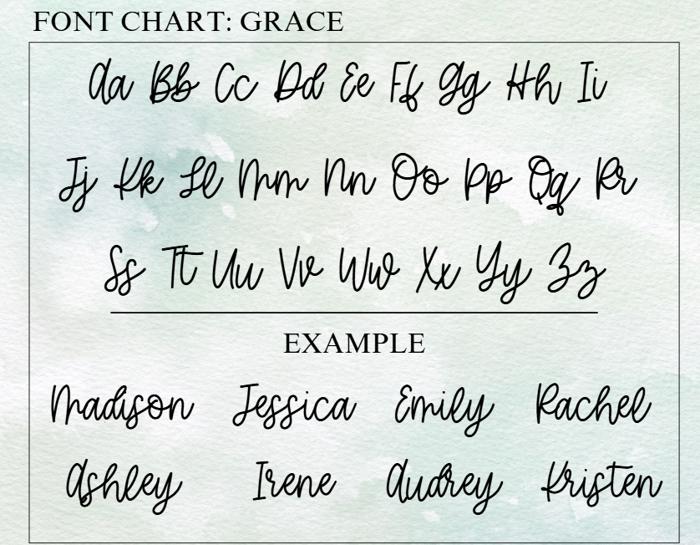 FONT CHART: GRACE
Aa Bb Cc Dd Ee Ff Gg Hh Ii
Jj Kk Ll Mm Nn Oo Pp Qq Rr
Ss Tt Uu Vv Ww Xx Yy Zz
EXAMPLE
Madison Jessica Emily Rachel
Ashley Irene Audrey Kristen